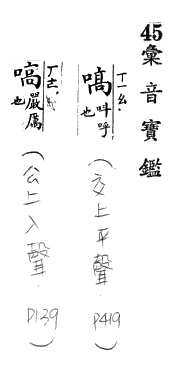 45彙音寶鑑
嗃 ㄒㄧㄠ. 叫呼也
(交上平聲 P419)
嗃 ㄏㄜ. 嚴厲也
(公上入聲 P139)